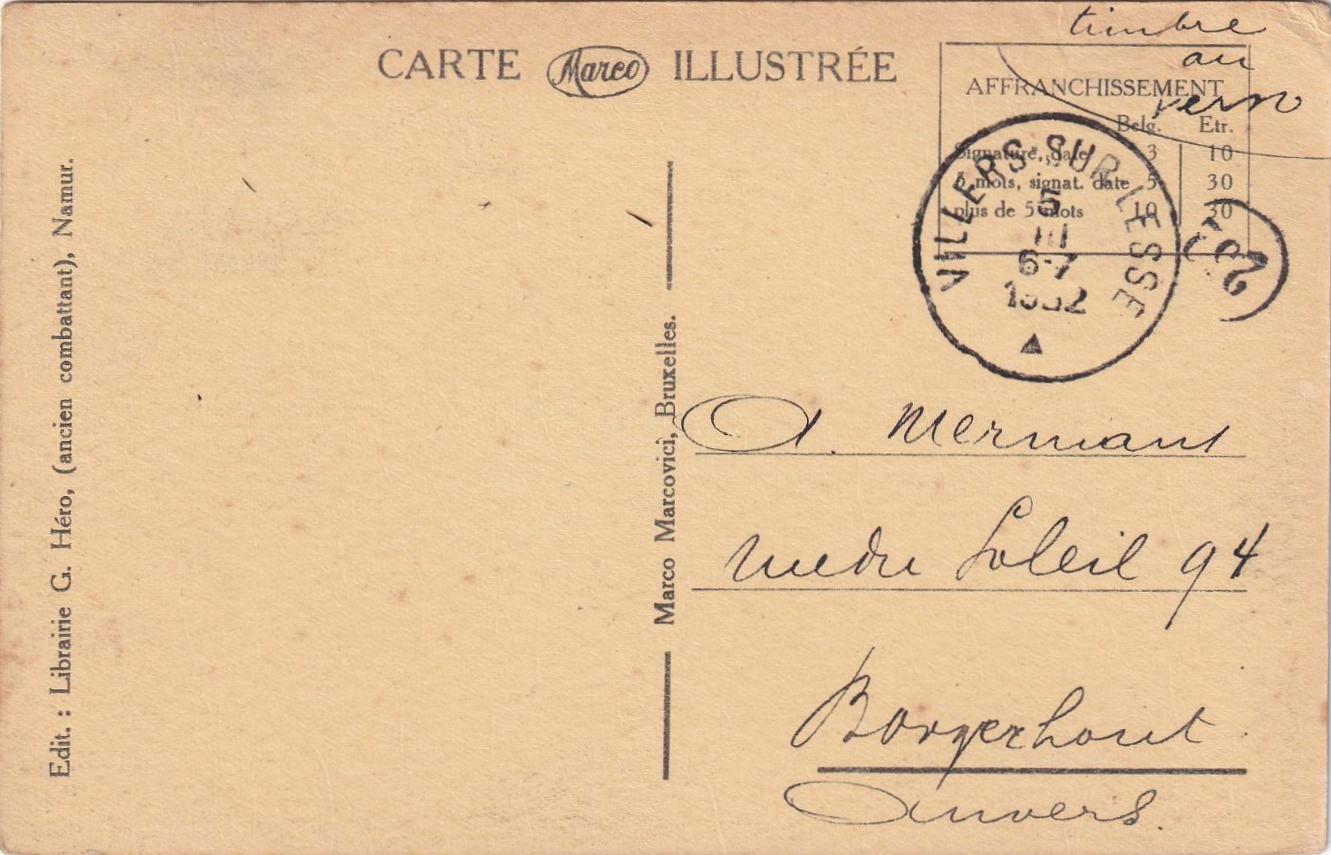 timbre
au
verso
CARTE Marco ILLUSTRÉE
AFFRANCHISSEMENT
Belg. Etr.
Signature, date 3 10
5 mots, signat. date 5 30
plus de 5 mots 10 30
VILLERS-SUR-LESSE
5
III
6-7
1932
Edit. : Librairie G. Héro, (ancien combattant), Namur.
Marco Marcovici, Bruxelles.
A. Mermans
rue du Soleil 94
Borgerhout
Anvers.